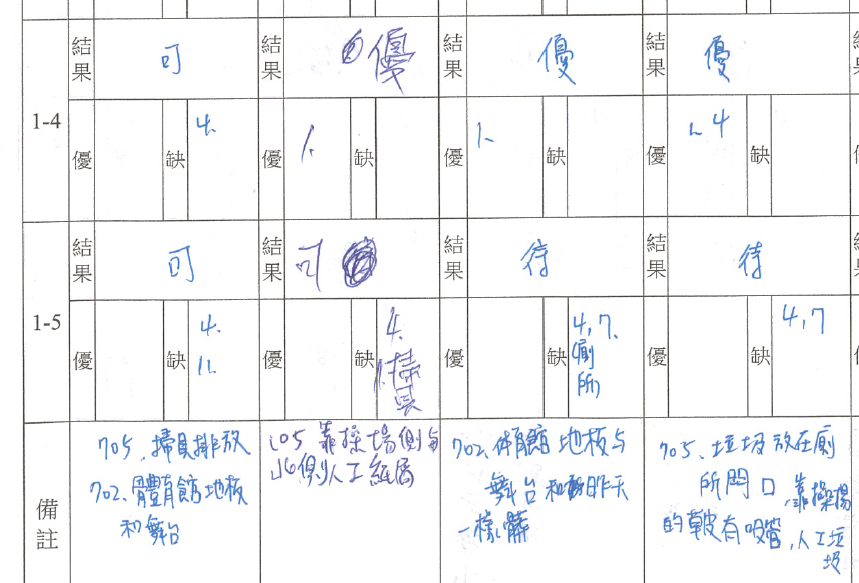 結果 可 結果 優 結果 優 結果 優
1-4 優 缺 4. 優 1. 缺 優 1. 缺 優 1. 4 缺
結果 可 結果 可 結果 待 結果 待
1-5 優 缺 4. 11. 優 缺 4. 1.掃具 優 缺 4,7. 廁所 優 缺 4,7
備註
705、掃具排放
702、體育館地板
和舞台
105 靠操場側与
側人工紙屑
702、体育館地板与
舞台和昨天
一樣髒
705、垃圾放在廁
所門口,靠操場
的草皮有吸管,人工垃
圾